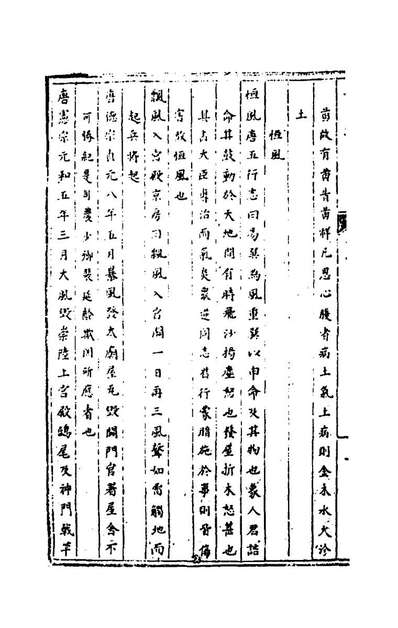 黃故有黃眚黃祥凡思心傷者病土氣土病則金木水火沴
土
恒風
恒風唐五行志曰易巽為風重巽以申命及其物也象人君誥
命其鼓動於天地間有時飛沙揚塵怒也發屋折木怒甚也
其占大臣專治而氣臭眾逆同志君行蒙暗施於事則皆傷
害故恒風也
飄風入宮飲京房曰飄風入宮闕一日再三風聲如雷觸地而
起兵將起
唐德宗貞元八年五月暴風發太廟屋瓦毀闕門官署屋舍不
可勝紀是時農少卿裴延齡欺罔所應者也
唐憲宗元和五年三月大風毀崇陵上宮殿鴟尾及神門戟竿